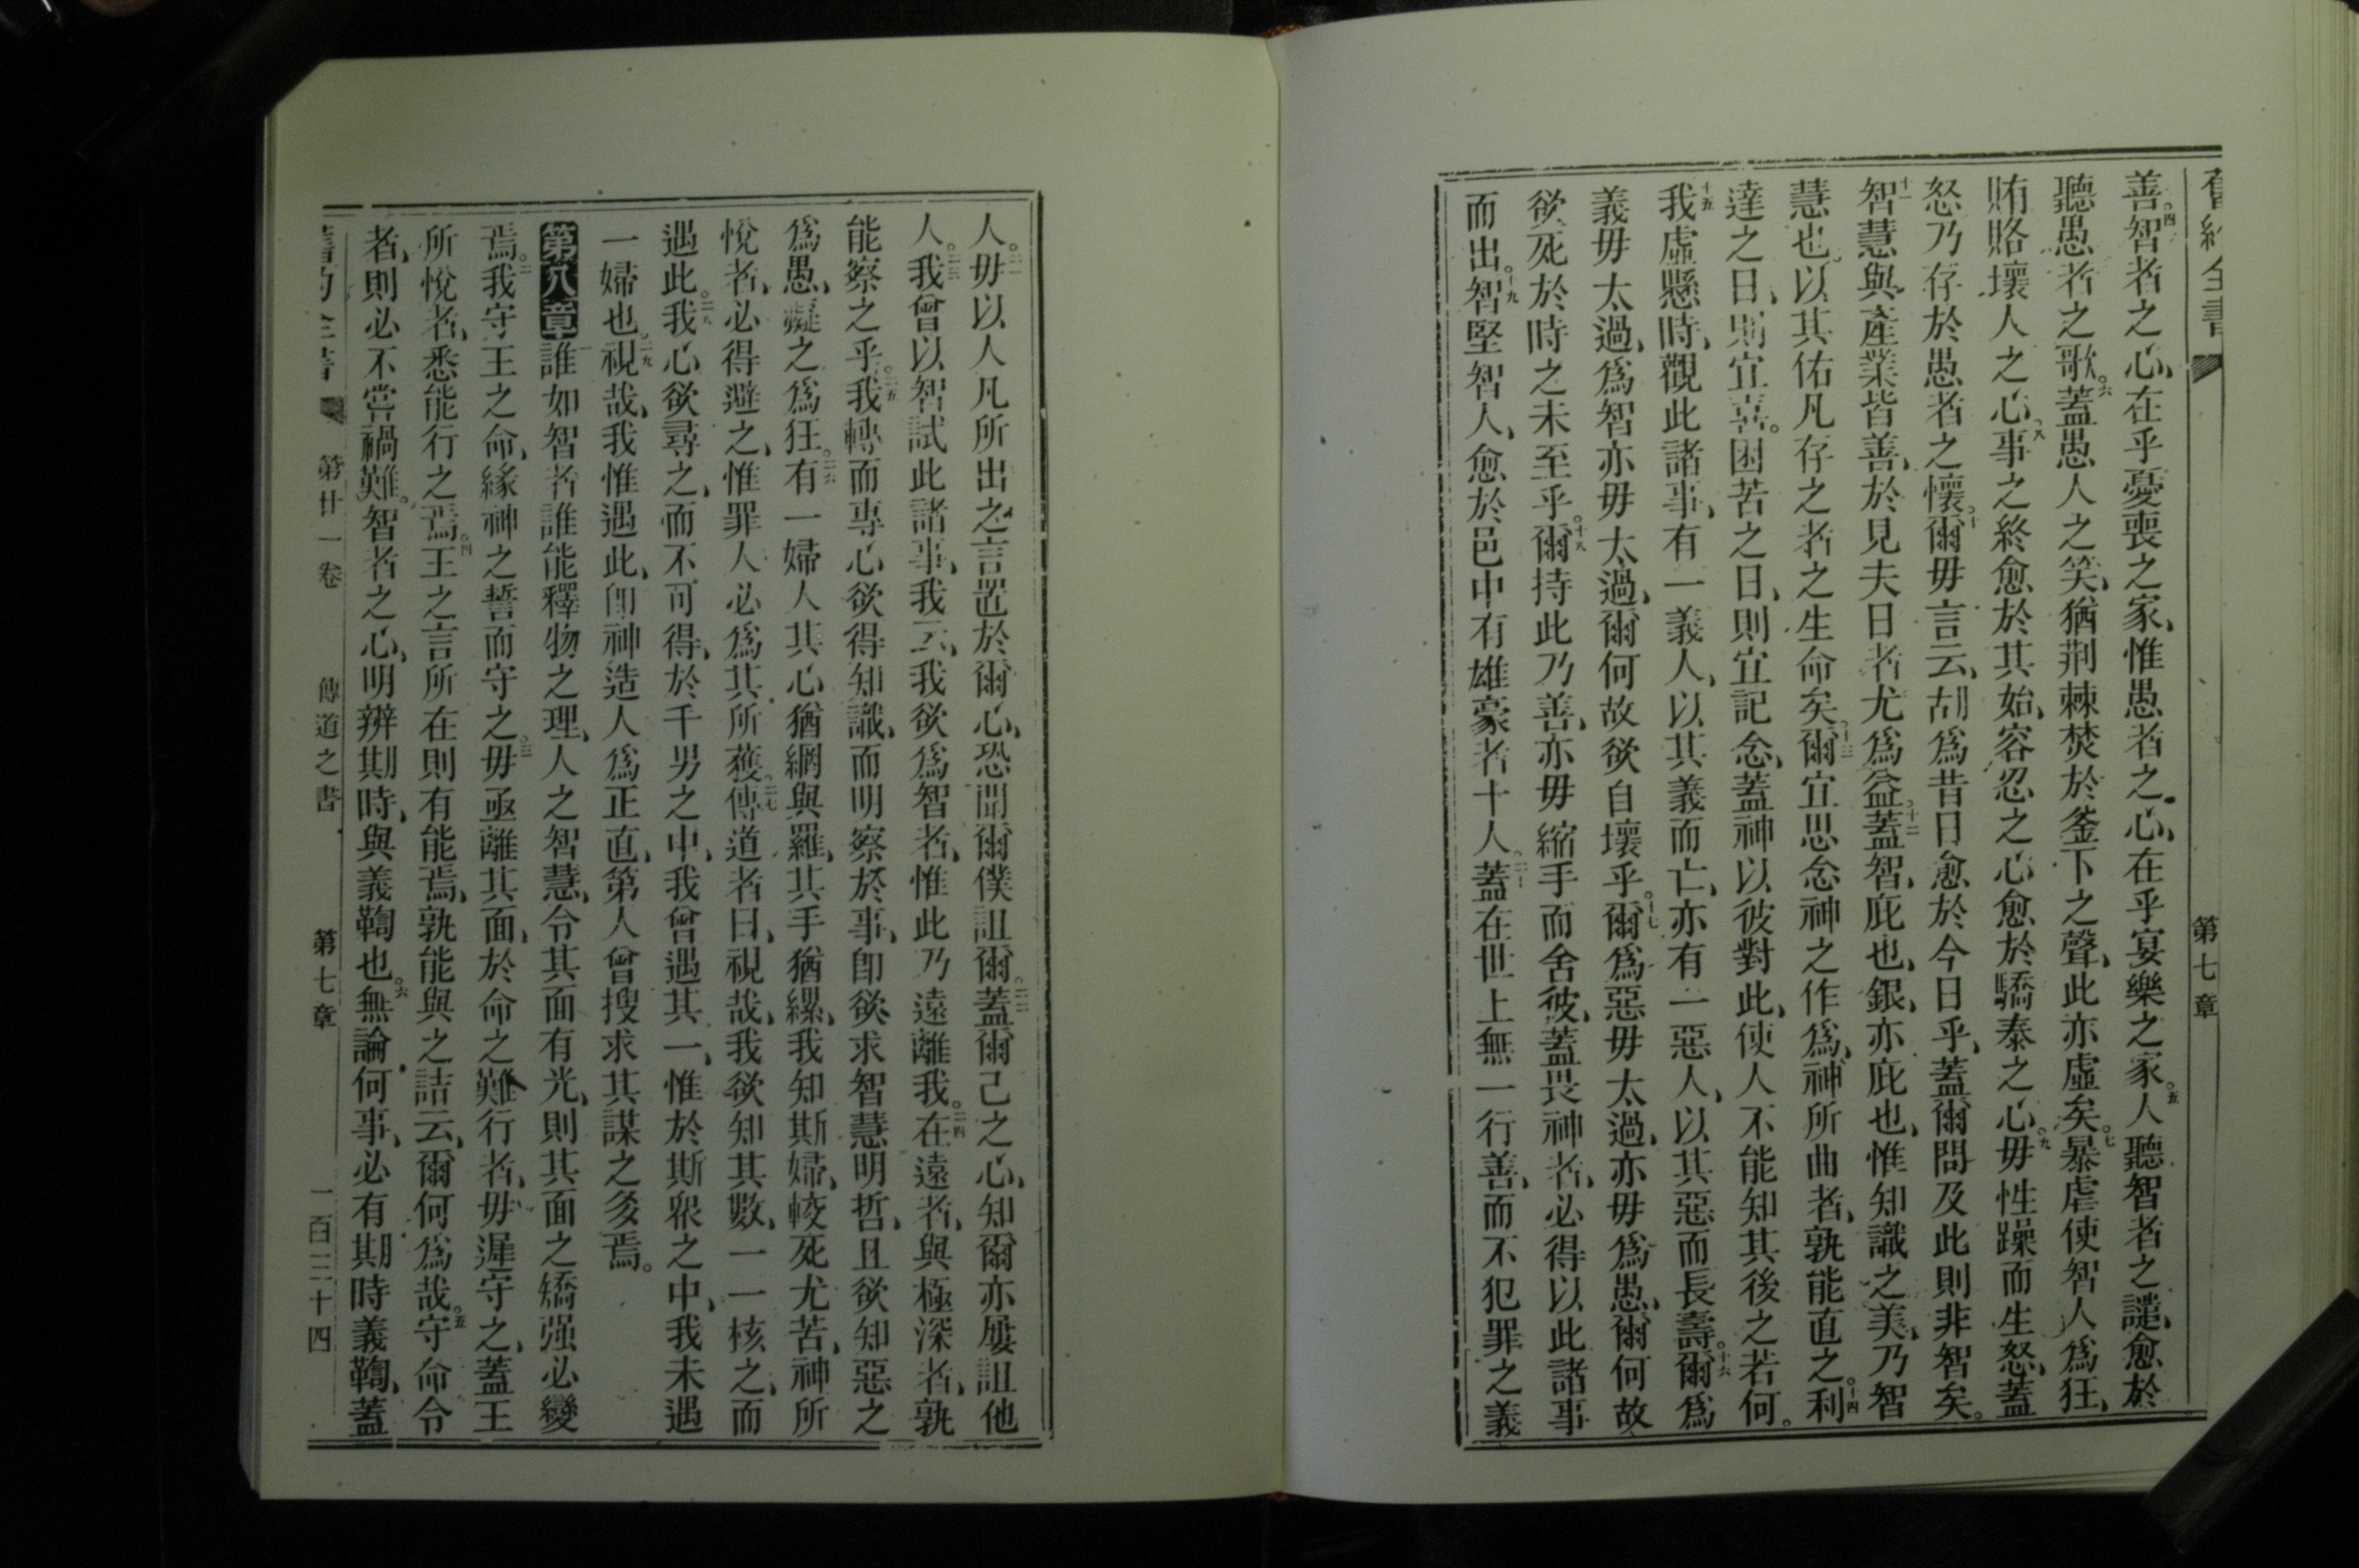 舊約全書 第七章
善。四智者之心、在乎憂喪之家、惟愚者之心、在乎宴樂之家。五人聽智者之譴、愈於
聽愚者之歌。六蓋愚人之笑、猶荆棘焚於釜下之聲、此亦虛矣。七暴虐使智人爲狂、
賄賂壞人之心。八事之終愈於其始、容忍之心愈於驕泰之心。九毋性躁而生怒、蓋
怒乃存於愚者之懷。十爾毋言云、胡爲昔日愈於今日乎、蓋爾問及此則非智矣。
十一智慧與產業皆善、於見夫日者尤爲益。十二蓋智、庇也、銀、亦庇也、惟知識之美、乃智
慧也、以其佑凡存之者之生命矣。十三爾宜思念神之作爲、神所曲者、孰能直之。十四利
達之日、則宜喜。困苦之日、則宜記念、蓋神以彼對此、使人不能知其後之若何。
十五我虛懸時、觀此諸事、有一義人、以其義而亡、亦有一惡人、以其惡而長壽。十六爾爲
義毋太過、爲智亦毋太過、爾何故欲自壞乎。十七爾爲惡毋太過、亦毋爲愚、爾何故
欲死於時之未至乎。十八爾持此乃善、亦毋縮手而舍彼、蓋畏神者、必得以此諸事
而出。十九智堅智人、愈於邑中有雄豪者十人。二十蓋在世上無一行善、而不犯罪之義
人。二一毋以人凡所出之言置於爾心、恐聞爾僕詛爾。二二蓋爾己之心、知爾亦屢詛他
人。二三我曾以智試此諸事、我云、我欲爲智者、惟此乃遠離我。二四在遠者、與極深者、孰
能察之乎。二五我轉而專心欲得知識、而明察於事、卽欲求智慧明哲、且欲知惡之
爲愚、癡之爲狂。二六有一婦人其心猶網與羅、其手猶縲、我知斯婦、較死尤苦、神所
悅者、必得避之、惟罪人必爲其所獲。二七傳道者曰、視哉、我欲知其數、一一核之、而
遇此。二八我心欲尋之、而不可得、於千男之中、我曾遇其一、惟於斯衆之中、我未遇
一婦也。二九視哉、我惟遇此、卽神造人爲正直、第人曾搜求其謀之多焉。
第八章 一誰如智者、誰能釋物之理、人之智慧、令其面有光、則其面之矯强必變
焉。二我守王之命、緣神之誓而守之。三毋亟離其面、於命之難行者、毋遲守之、蓋王
所悅者、悉能行之焉。四王之言所在則有能焉、孰能與之詰云、爾何爲哉。五守命令
者、則必不嘗禍難。智者之心、明辨期時、與義鞫也。六無論何事、必有期時義鞫、蓋
舊約全書 第廿一卷 傳道之書 第七章 二百三十四